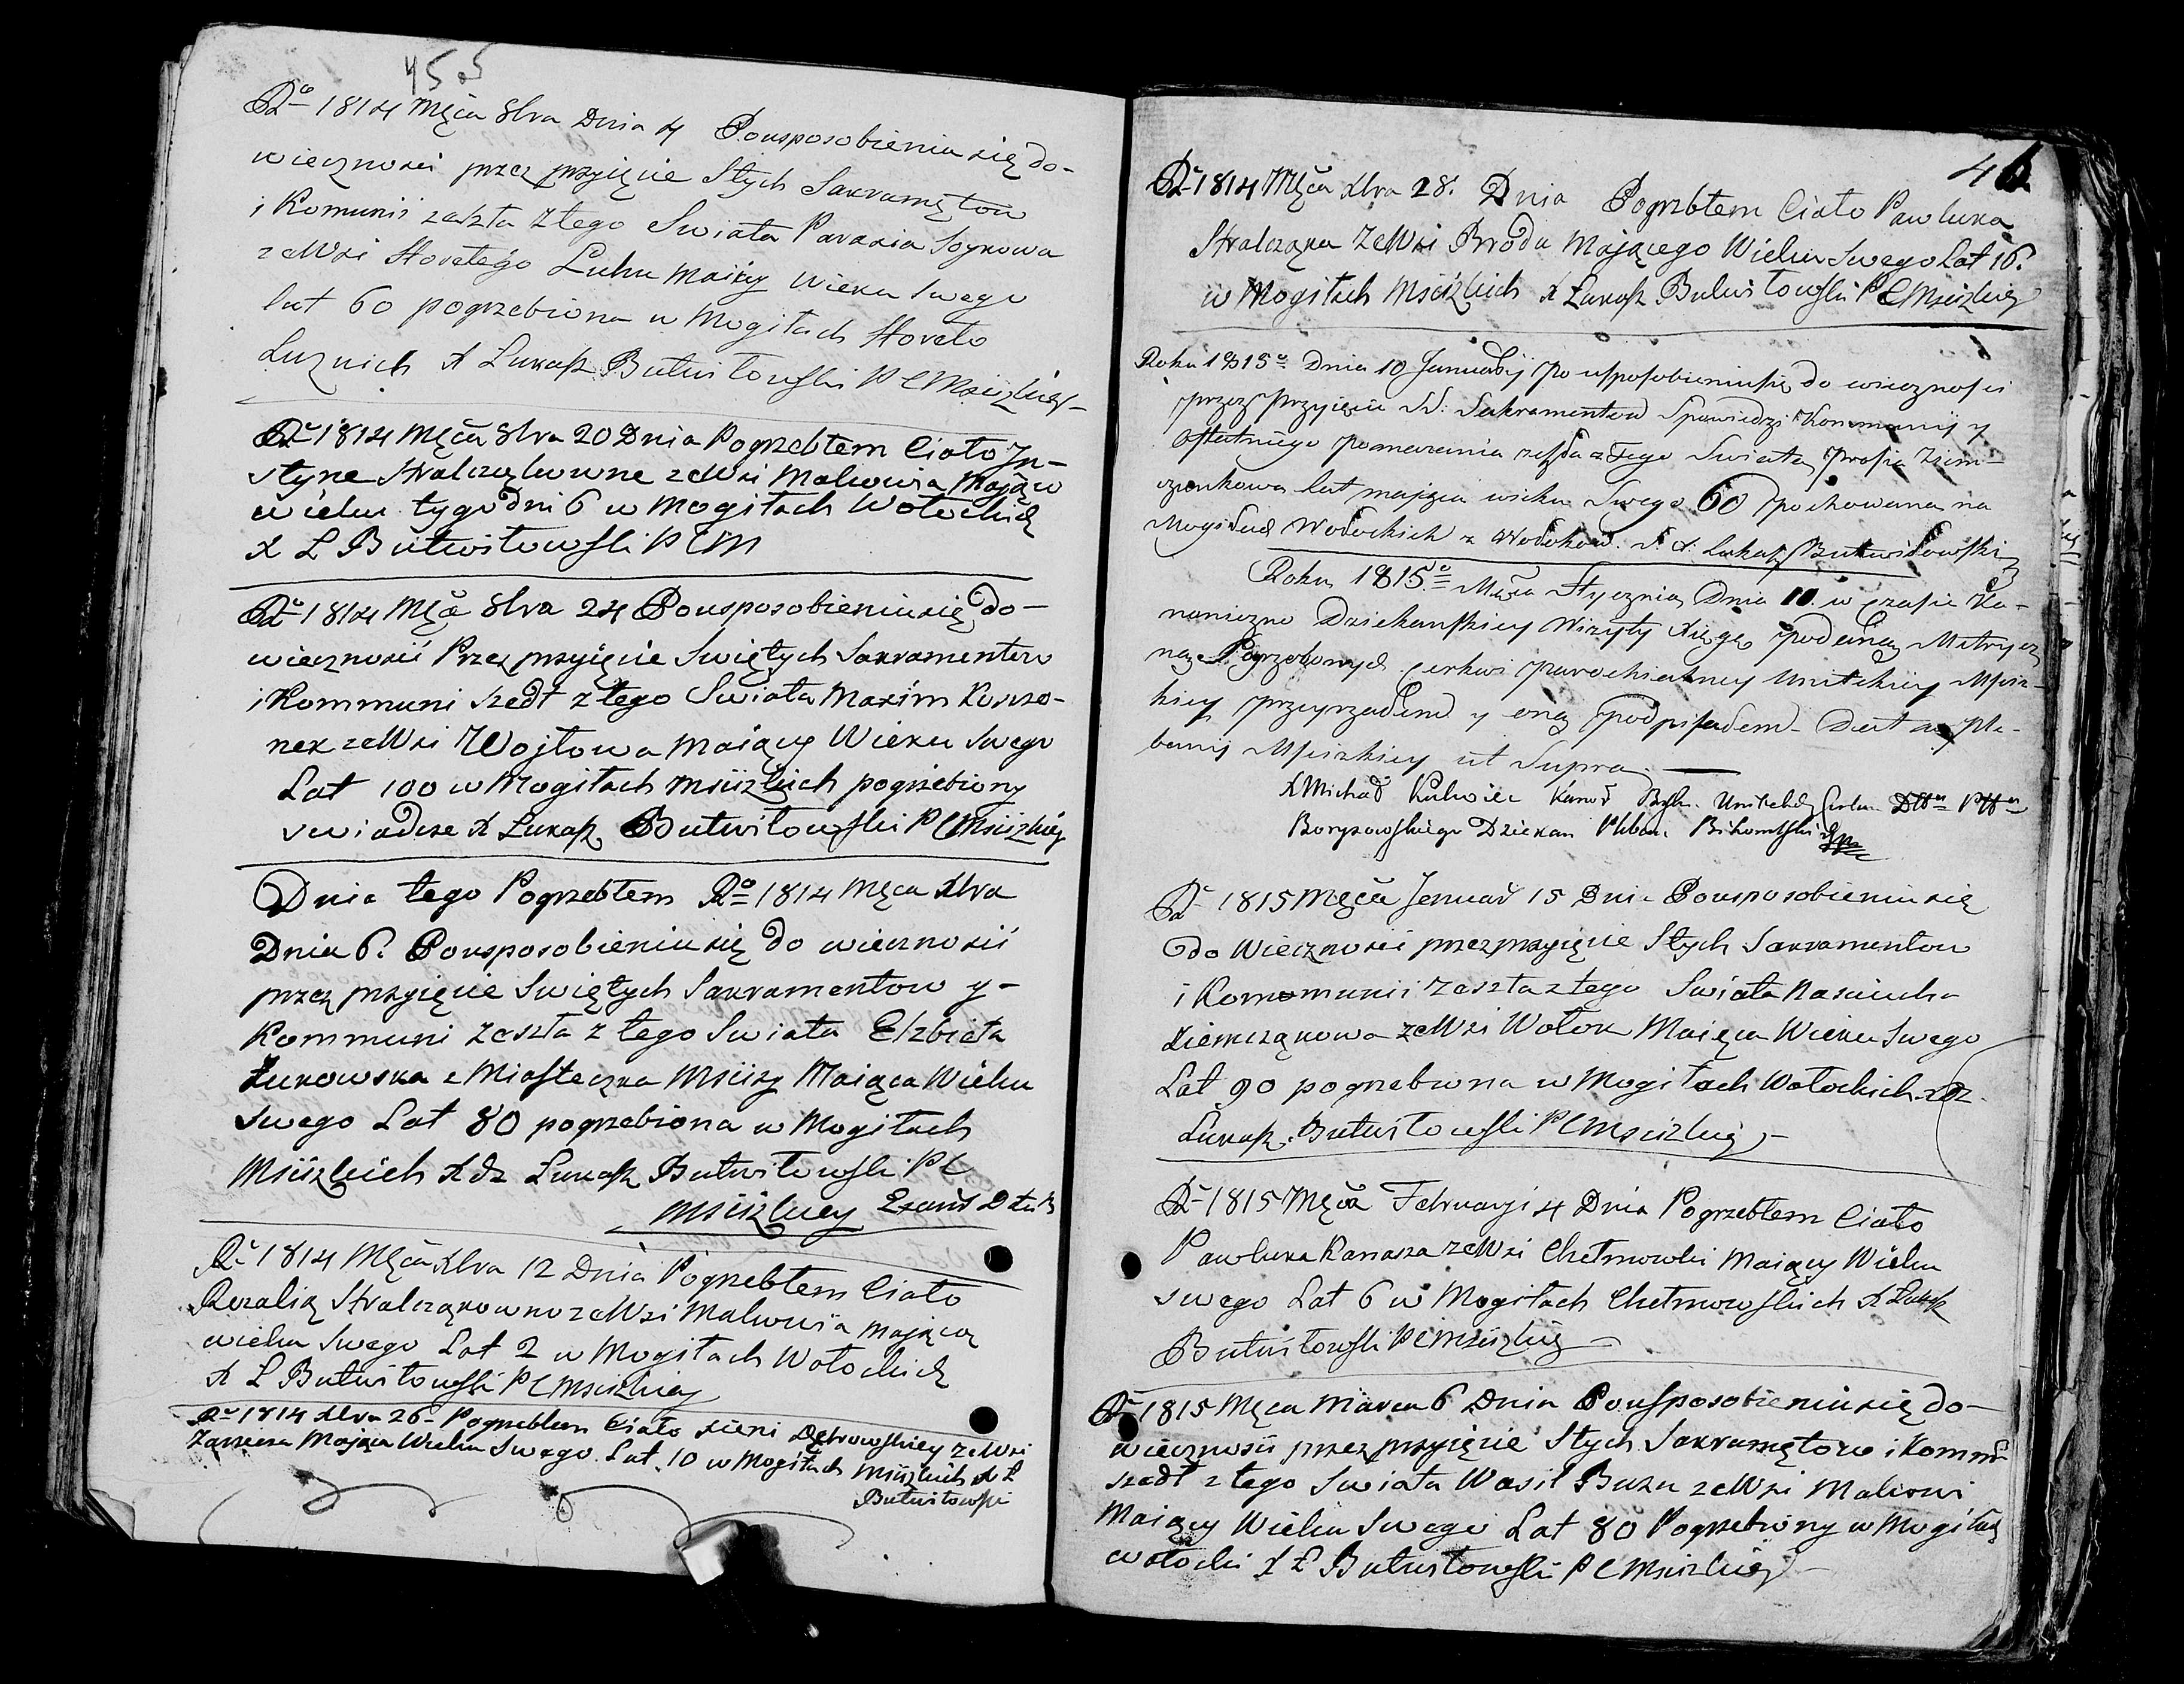 45.5
Rº 1814 Męca 8bra Dnia 4 Pousposobieniu się do-
wiecznosci przez przyięcie Stych Sakramętow
i Komunii zeszła z tego Swiata Paraska
zeWsi Horełego Luhu maiący Wieku Swego
lat 60 pogrzebiona w Mogiłach Horeło
Luznich X Łukasz Butwiłowski P C Msciżkiey
Rº 1814 Męca 8bra 20 Dnia Pogrzebłem Ciało Ju-
styne Stralcząkowne zeWsi Malowia Mając
wieku tygodni 6 w Mogiłach Wołockich
X Ł Butwiłowski P C M
Rº 1814 Męca 8bra 24 Pousposobieniu się do-
wiecznosii Przez przyięcie Swiętych Sakramentow
i Kommuni szedł z tego Swiata Maxim
zeWsi Woytowa maiący Wieku Swego
Lat 100 w Mogiłach Msciżkich pogrzebiony
swiadcze X Łukasz Butwiłowski P C Msciżkiey
Dnia tego Pogrzebłem Rº 1814 Męca Xbra
Dnia 6. Pousposobieniu się do wiecznosii
przez przyięcie Swiętych Sakramentow y-
Kommuni Zeszła z tego Swiata Elzbieta
Żukowska z Miasteczka Msciży Maiąca Wieku
swego Lat 80 pogrzebiona w Mogiłach
Msciżkich Xdz Łukasz Butwiłowski P C
Msciżkiey
Rº 1814 Męca Xbra 12 Dnia Pogrzebłem Ciało
Rozalią Stralcząkowno zeWsi Malowia mającą
wieku Swego Lat 2 w Mogiłach Wołockich
X Ł Butwiłowski P C Msciżkiey
Rº 1814 Xbra 26- Pogrzebłem Ciało Xieni Dębrowskiey zeWsi
Mająca Wieku Swego Lat 10 w Mogiłach Msciżkich X Ł
Butwiłowski
46
Rº 1814 Męca Xbra 28. Dnia Pogrzbłem Ciało Pawluka
Stralcząka zeWsi Broda Mającego Wieku Swego Lat 16.
w Mogiłach Msciżkich X Łukasz Butwiłowski P C Msciżkiey
Roku 1815º Dnia 10 Januarij Po usposobieniu się do wieczności
przez Przyięcie SS: Sakramentow Spowiedzi Kommunij y
Ostatniego pomazania zeszła z Tego Swiata Prosia Ziem-
czonkowa lat mająca wieku Swego 60 pochowana na
Mogiłach Wołockich z Wołokow. X. Łukasz Butwiłowski
Roku 1815.º Mca Stycznia Dnia 11. w czasie Ka-
noniczno Dziekanskiey Wizyty Xięgę podaną Metrycz
ną Pogrzebowych Cerkwi parochialney Unitskiey Mscis-
kiey przeyrzałem y oną podpisałem. Dat na Ple-
banij Msciżkiey ut Supra.
X Michał Kulwiec Kanon
Borysowskiego Dziekan Pleban
Rº 1815 Męca Januar 15 Dnia Pousposobieniu się
do Wiecznosci przez przyięcie Stych Sakramentow
i Kommunii Zeszła z tego Swiata Nasciucha
Ziemcząkowa zeWsi Wołok Maiąca Wieku Swego
Lat 90 pogrzebiona w Mogiłach Wołockich Xdz.
Łukasz Butwiłowski P C Msciżkiey
Rº 1815 Męca Februaryi 4 Dnia Pogrzebłem Ciało
Pawluka Kanasza zeWsi Chełmowki Maiący Wieku
swego Lat 6 w Mogiłach Chełmowskich X Łukasz
Butwiłowski P C Msciżkiey
Rº 1815 Męca Marca 6 Dnia Pousposobieniu się do-
wiecznosii przez przyięcie Stych Sakramętow i Kommu
szedł z tego Swiata Wasil zeWsi Malowi
Maiący Wieku Swego Lat 80 Pogrzebiony w Mogiłach
wołocki X Ł Butwiłowski P C Msciżkiey